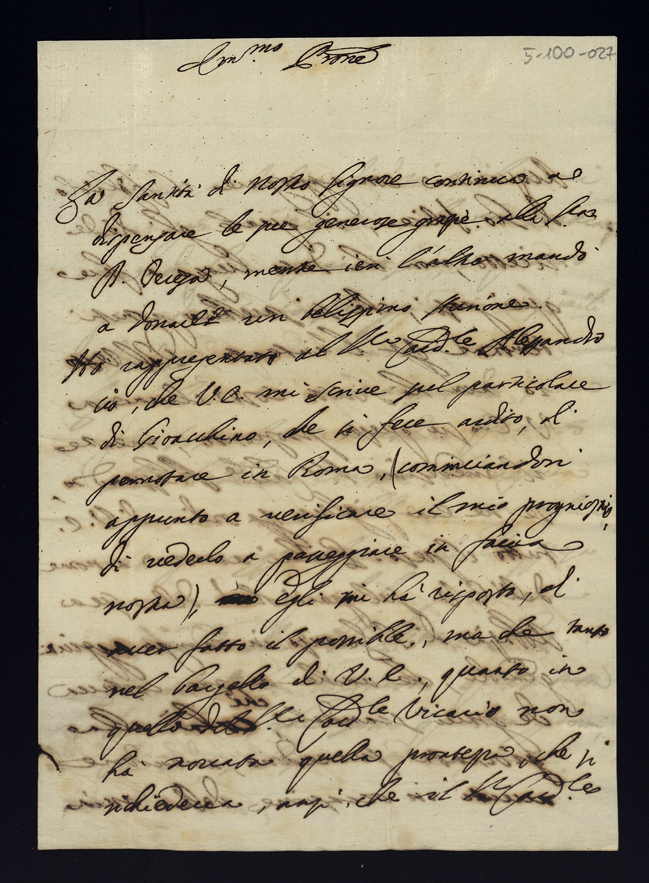 Am.mo Prone
5-100-027
La Santità di Nostro Signore continua a
dispensare le sue generose grazie alla
mentre ieri l'altro mandò
a donarle un belissimo storione.
Hò rappresentato al Sr. Card.le Alessandro
ciò, che V.E. mi scrive sul particolare
di Gioacchino, che si fece ardito, di
pernottare in Roma, (cominciandosi
appunto a verificare il mio
di vederlo a passeggiare in faccia
nostra), Egli mi hà risposto, di
aver fatto il possibile, ma che tanto
nel Bargello di V.E., quanto in
quello del Sr. Card.le Vicario non
hà trovata quella prontezza, che si
richiedeva, anzi, che il Sr. Card.le